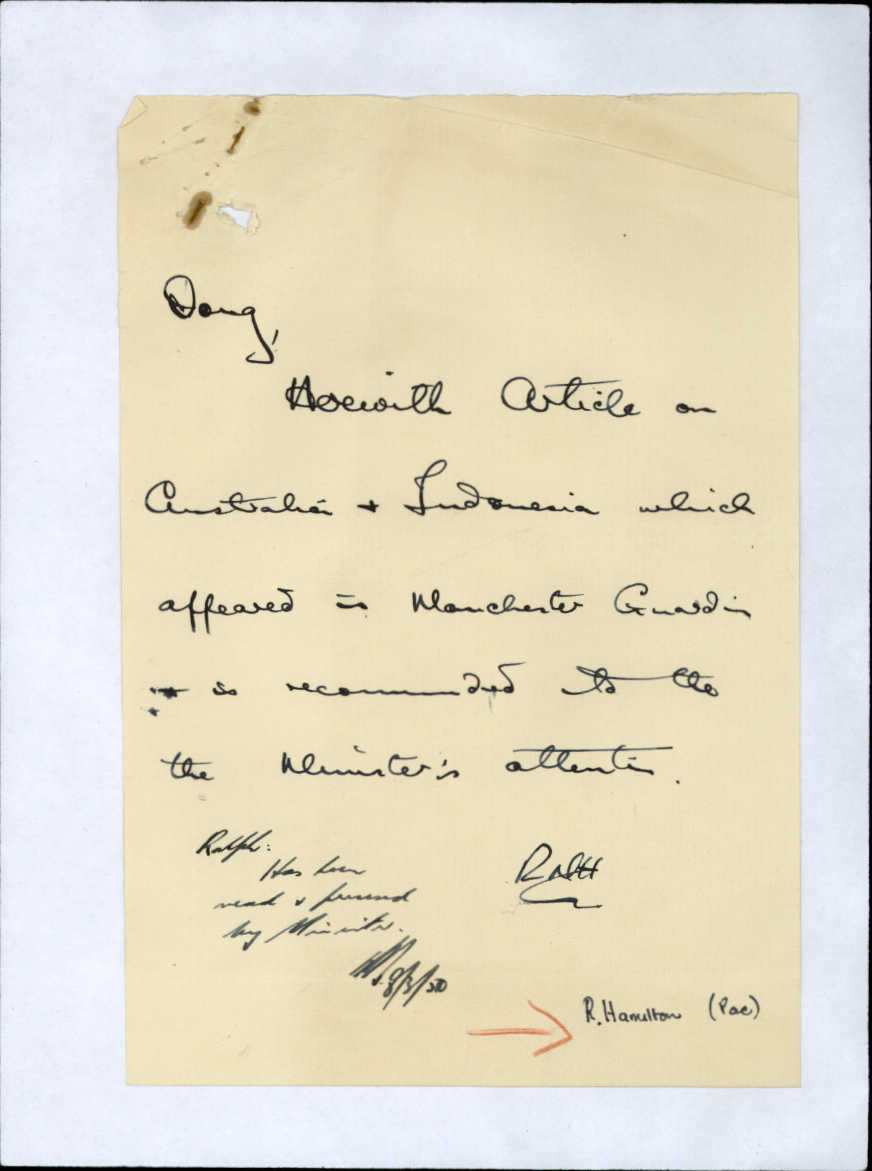 Doug,
Herewith Article on
Australia + Indonesia which
appeared in Manchester Guardian
is recommended to the
the Minister's attention.
Ralph:
Has been
read & perused
by Minister.
8/3/50
R. Hamilton (Pac)